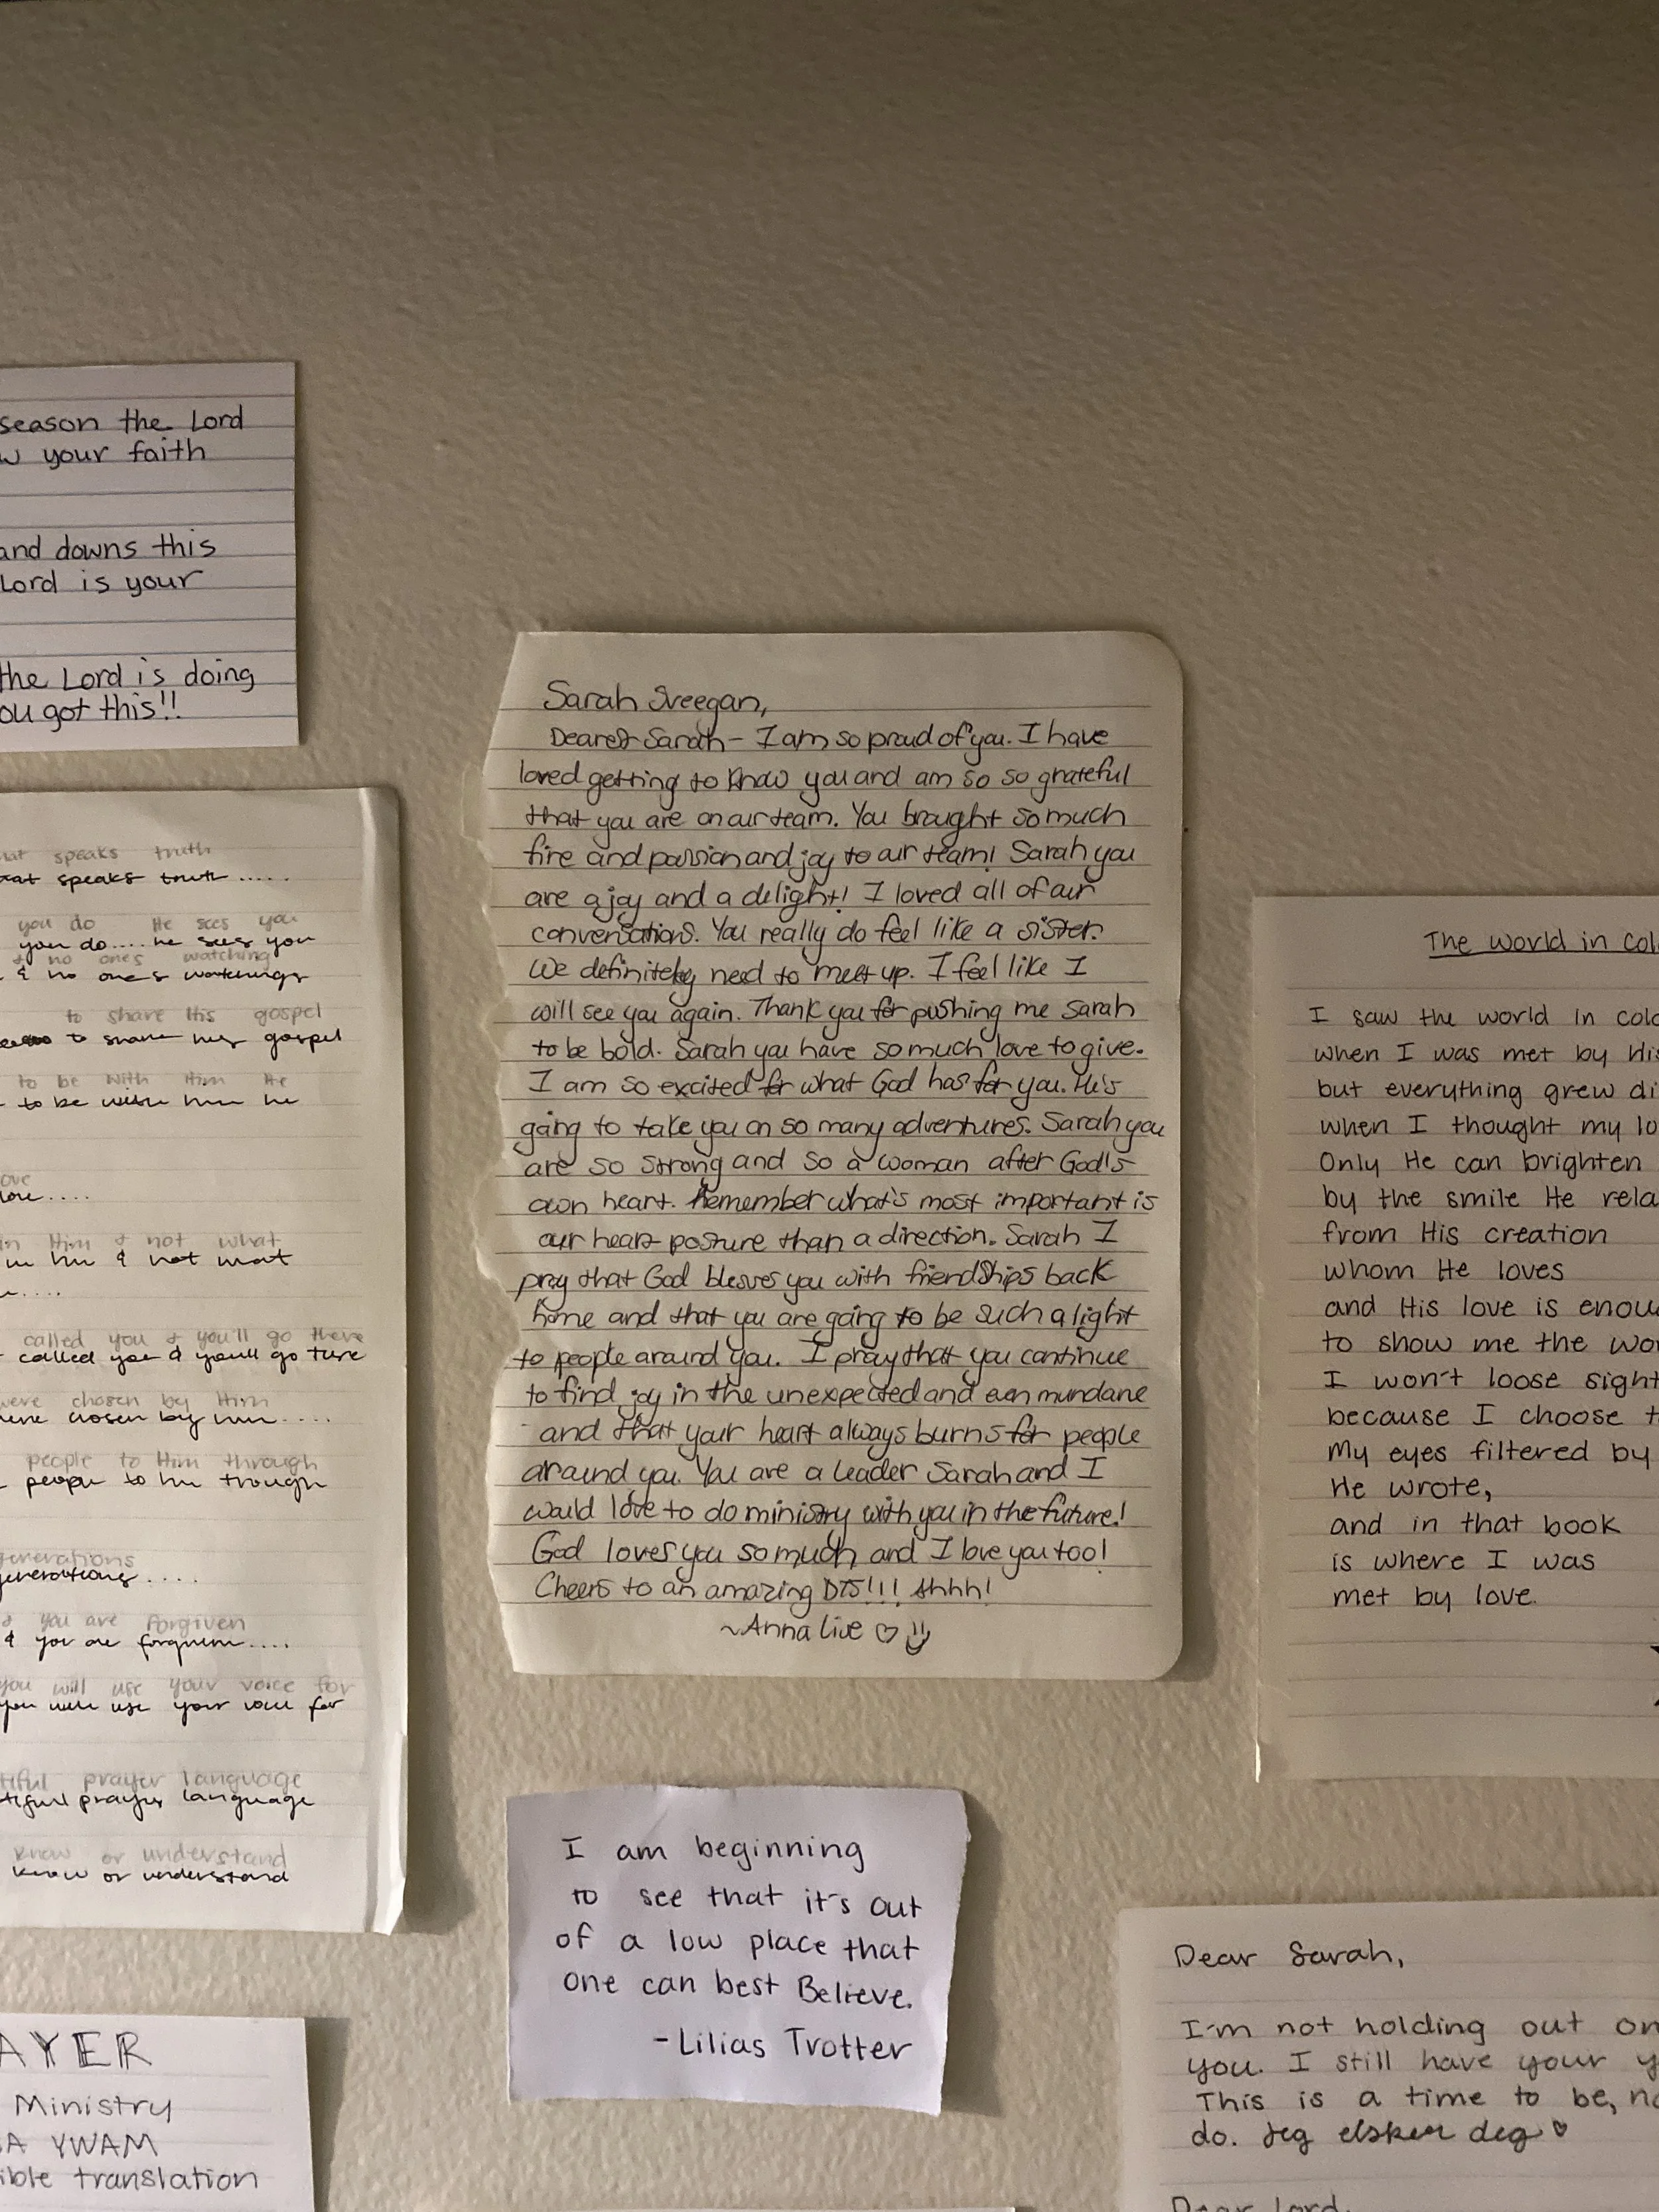 season the Lord
your faith
and downs this
Lord is your
the Lord is doing
you got this!!
speaks truth
speaks truth.....
you do He sees you
you do....he sees you
& no one's watching
& no one's watchings
to share His gospel
to share his gospel
to be with Him He
to be with him he
in Him & not what
in him & not what
called you & you'll go there
called you & you'll go there
were chosen by Him
were chosen by him....
people to Him through
people to him trough
generations
generations....
& you are forgiven
& you are forgiven....
you will use your voice for
you will use your voice for
prayer language
prayer language
know or understand
know or understand
Sarah Sveegan,
Dearest Sarah - I am so proud of you. I have
loved getting to know you and am so so grateful
that you are on our team. You brought so much
fire and passion and joy to our team! Sarah you
are a joy and a delight! I loved all of our
conversations. You really do feel like a sister.
We definitely need to meet up. I feel like I
will see you again. Thank you for pushing me Sarah
to be bold. Sarah you have so much love to give.
I am so excited for what God has for you. He's
going to take you on so many adventures. Sarah you
are so strong and so a woman after God's
own heart. Remember what's most important is
our heart posture than a direction. Sarah I
pray that God blesses you with friendships back
home and that you are going to be such a light
to people around you. I pray that you continue
to find joy in the unexpected and even mundane
and that your heart always burns for people
around you. You are a leader Sarah and I
would love to do ministry with you in the future!
God loves you so much and I love you too!
Cheers to an amazing DTS!!! Ahhh!
~Anna Live ♡
The world in
I saw the world in
when I was met by His
but everything grew
when I thought my
Only He can brighten
by the smile He
from His creation
whom He loves
and His love is
to show me the
I won't loose sight
because I choose
My eyes filtered by
He wrote,
and in that book
is where I was
met by love.
I am beginning
to see that it's out
of a low place that
one can best Believe.
-Lilias Trotter
Ministry
YWAM
translation
Dear Sarah,
I'm not holding out on
you. I still have your
This is a time to be,
do. Jeg elsker deg ♡
Dear Lord,